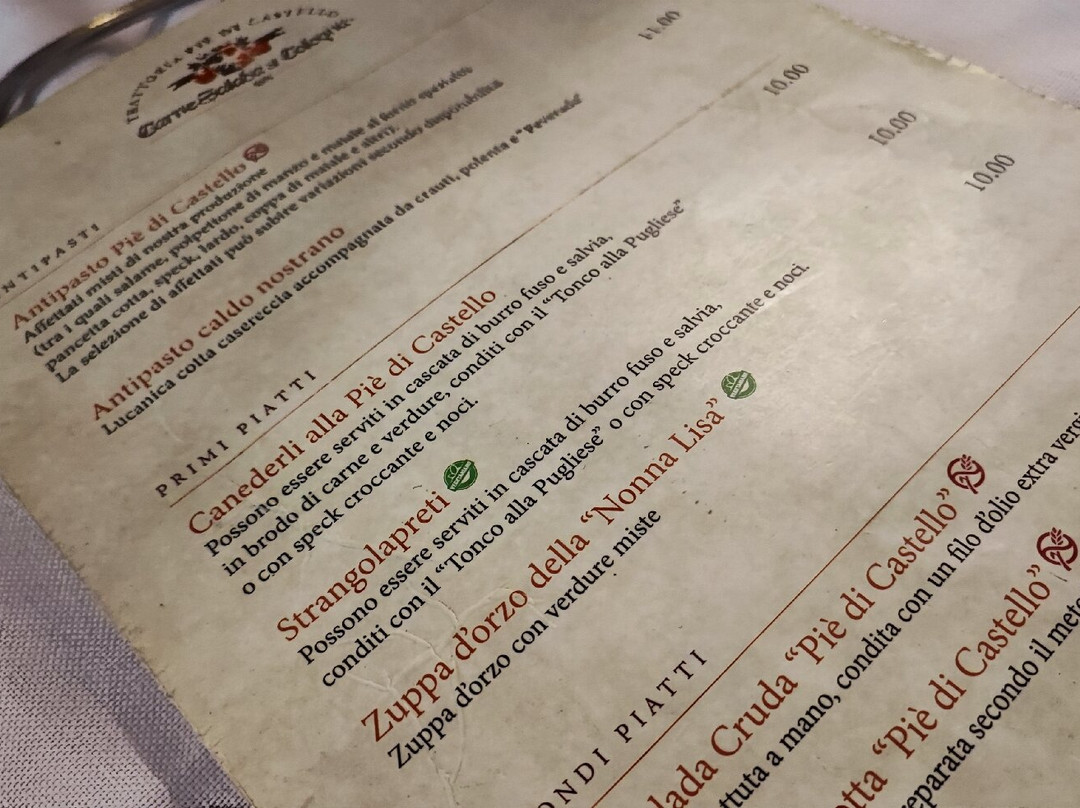 TRATTORIA PIÈ DI CASTELLO
Carne Salada
NTIPASTI
Antipasto Piè di Castello
Affettati misti di nostra produzione
(tra i quali salame, polpettone di manzo e maiale al forno speziato
Pancetta cotta, speck, lardo, coppa di maiale e altri).
La selezione di affettati può subire variazioni secondo disponibilità
Antipasto caldo nostrano
11.00
Lucanica cotta casereccia accompagnata da crauti, polenta e "Peverada"
PRIMI PIATTI
Canederli alla Piè di Castello
10.00
Possono essere serviti in cascata di burro fuso e salvia,
in brodo di carne e verdure, conditi con il “Tonco alla Pugliese”
o con speck croccante e noci.
Strangolapreti
VEGETARIANO
10.00
Possono essere serviti in cascata di burro fuso e salvia,
conditi con il “Tonco alla Pugliese” o con speck croccante e noci.
Zuppa d'orzo della “Nonna Lisa”
VEGETARIANO
10.00
Zuppa d'orzo con verdure miste
ONDI PIATTI
lada Cruda “Piè di Castello”
ttuta a mano, condita con un filo d'olio extra verg
otta “Piè di Castello”
eparata secondo il meto